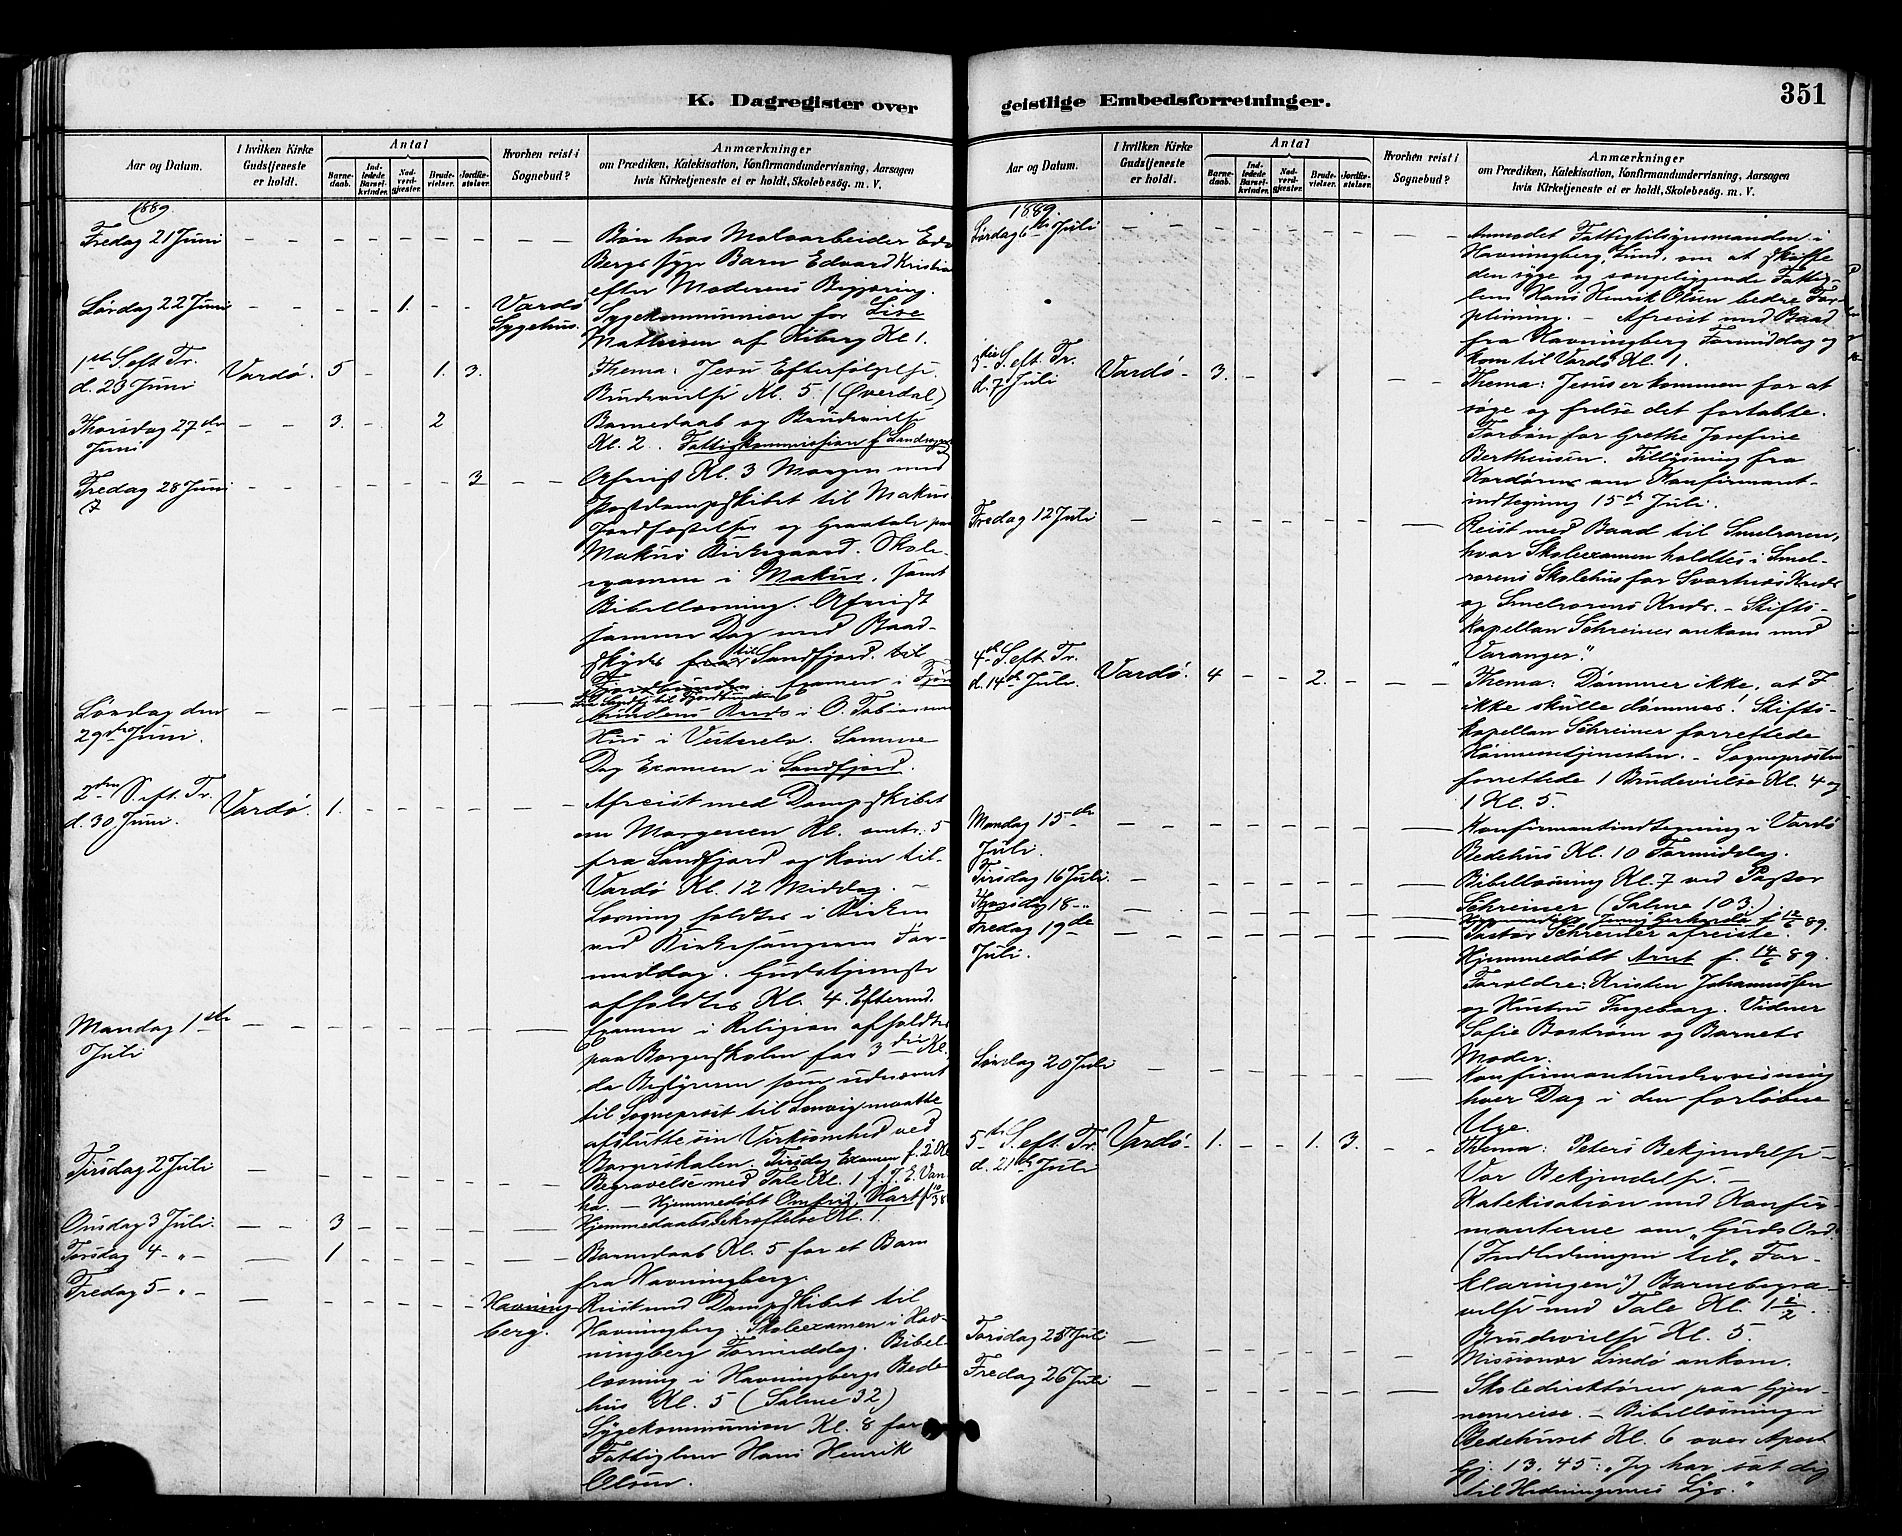 K. Dagregister over
Aar og Datum.
I hvilken Kirke Gudstjeneste er holdt.
Antal
Barnedaab.
Indledede Barselkvinder.
Nadverdgjester.
Brudevielser.
Jordfæstelser.
Hvorhen reist i Sognebud?
Anmærkninger
om Prædiken, Katekisation, Konfirmandundervisning, Aarsagen
hvis Kirketjeneste ei er holdt, Skolebesøg. m. V.
1889.
Fredag 21 Juni
Bøn hos Malerarbeider Edv
Bergs syge Barn Edvard Kristian
efter Moderens Begjæring.
Lørdag 22 Juni 1. Vardø
Sygehus.
Sygekommunion for Lise
Mathisen af Kiberg Kl 1.
1ste S. eft. Tr.
d. 23 Juni Vardø. 5 1. 3.
Thema: Jesu Efterfølgelse.
Brudevielse Kl. 5. (Øverdal)
Thorsdag 27de
Juni 3. 2
Barnedaab og Brudevielse
Kl. 2. Fattigkommission f. Landsogn
Fredag 28 Juni 3
Afreist Kl. 3 Morgen med
Postdampskibet til Makur.
Jordfæstelse og Gravtale paa
Makur Kirkegaard. Skole-
examen i Makur, samt
Bibellæsning. Afreist
samme Dag med Baad-
skyds til Sandfjord.
Lørdag den
29de Juni.
Kreds i O. Tobiassens
Hus i Vesterelv. Samme
Dag Examen i Sandfjord.
2den S. eft. Tr.
d. 30 Juni. Vardø. 1.
Afreist med Dampskibet
om Morgenen Kl. omtr. 5
fra Sandfjord og kom til
Vardø Kl. 12 Middag. –
Læsning holdtes i Kirken
ved Kirkesangeren For-
middag. Gudstjeneste
afholdtes Kl. 4. Eftermd.
Mandag 1ste
Juli
Examen i Religion afholdtes
paa Borgerskolen for 3die Kl.
da Bestyreren som udnævnt
til Sogneprest til Lenvig maatte
afslutte sin Virksomhed ved
Borgerskolen. Tirsdag Examen f. 2 Kl
Tirsdag 2 Juli
Begravelse med Tale Kl. 1 f. J. E. Van-
ha. – Hjemmedøbt
Onsdag 3 Juli. 3
Hjemmedaabsbekræftelse Kl. 1.
Torsdag 4 - „ - 1
Barnedaab Kl. 5 for et Barn
fra Havningberg.
Fredag 5 - „ - Havning-
berg.
Reist med Dampskibet til
Havningberg. Skoleexamen i Hav-
ningberg Formiddag. Bibel-
læsning i Havningbergs Bede-
hus Kl. 5 (Salme 32)
Sygekommunion Kl. 8 for
Fattiglem Hans Henrik
Olsen.
geistlige Embedsforretninger.
351
Aar og Datum.
I hvilken Kirke Gudstjeneste er holdt.
Antal
Barnedaab.
Indledede Barselkvinder.
Nadverdgjester.
Brudevielser.
Jordfæstelser.
Hvorhen reist i Sognebud?
Anmærkninger
om Prædiken, Katekisation, Konfirmandundervisning, Aarsagen
hvis Kirketjeneste ei er holdt, Skolebesøg. m. V.
1889.
Lørdag 6te Juli
Anmodet Fattigtilsynsmanden i
Havningberg, Lund, om at skaffe
den syge og sengeliggende Fattig-
lem Hans Henrik Olsen bedre For-
pleining. – Afreist med Baad
fra Havningberg Formiddag og
kom til Vardø Kl. 1.
3die S. eft. Tr.
d. 7 Juli Vardø 3.
Thema: Jesus er kommen for at
søge og frelse det fortabte.
Forbøn for Grethe Josefine
Berthensen. Tillysning fra
Kordøren om Konfirmant-
indtegning 15de Juli.
Fredag 12 Juli
Reist med Baad til Smelroren,
hvor Skoleexamen holdtes i Smel-
rorens Skolehus for Svartnæs Kreds
og Smelrorens Kreds. – Stifts-
kapellan Schreiner ankom med
„Varanger".
4de S. eft. Tr.
d. 14de Juli. Vardø. 4 2.
Thema: Dømmer ikke, at I
ikke skulle dømmes! Stifts-
kapellan Schreiner forrettede
Høimessetjenesten. – Sognepresten
forrettede 1 Brudevielse Kl. 4 og
1 Kl. 5.
Mandag 15de
Juli.
Konfirmantindtegning i Vardø
Bedehus Kl. 10 Formiddag.
Tirsdag 16 Juli.
Bibellæsning Kl. 7 ved Pastor
Schreiner (Salme 103.)
Thorsdag 18 - „
Hjemmedøbt
Fredag 19de
Juli.
Pastor Schreiner afreiste.
Hjemmedøbt Arnt f. 14/6 89.
Forældre: Kristen Johannessen
og Hustru Ingeborg. Vidner
Sofie Bostrøm og Barnets
Moder.
Lørdag 20 Juli
Konfirmantundervisning
hver Dag i den forløbne
Uge.
5te S. eft. Tr.
d. 21de Juli Vardø 1. 1. 3.
Thema: Peters Bekjendelse –
Vor Bekjendelse. –
Katekisation med Konfir-
manterne om „Guds Ord"
(Indledningen til „For-
klaringen".) Barnebegra-
velse med Tale Kl. 1 1/2.
Brudevielse Kl. 5.
Torsdag 25 Juli
Missionær Lindø ankom.
Fredag 26 Juli
Skoledirektøren paa Gjen-
nemreise. – Bibellæsning i
Bedehuset Kl. 6 over Apost
Gj. 13. 45: „Jeg har sat dig
til Hedningernes Lys."